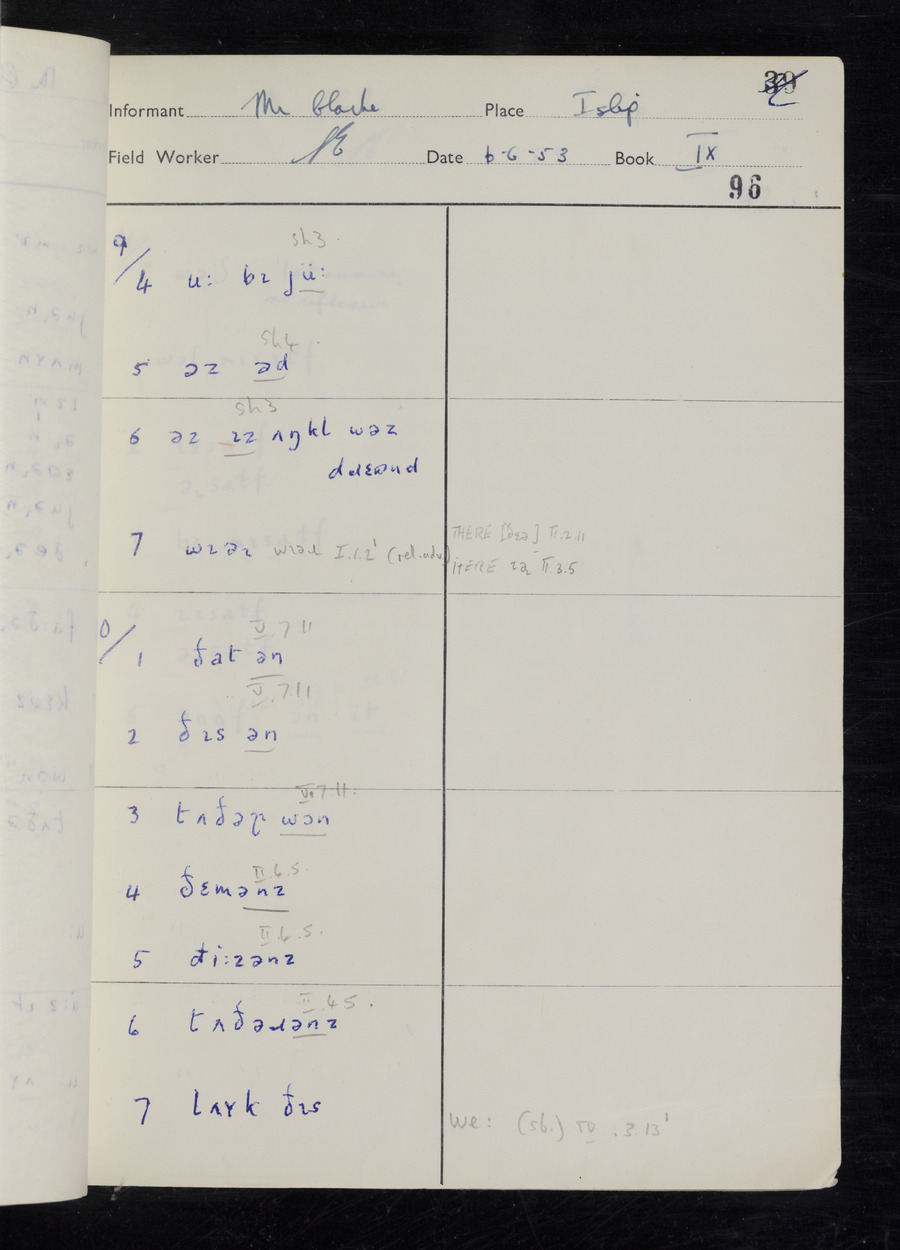 Informant Mr Clarke Place Islip
Field Worker Date 6-6-53 Book IX
96
9/
sh3.
4 u: bɪ jü:
sh4.
5 əz əd
sh3
6 əz ɪz ʌŋkl wəz
7 wɪəɾ wɪəɹ I.1.2' (rel. adv.) THERE [ðɛə] II.2.11
HERE II.3.5
0/
V.7.11
1 ðat ən
V.7.11
2 ðɪs ən
VI.7.11.
3 tʌðəɽ wən
II.6.5.
4 ðɛmənz
II.6.5.
5 ði:zənz
II.4.5.
6 tʌðəɹənz
7 lʌɤk ðɪs
we: (sb.) IV.3.13'